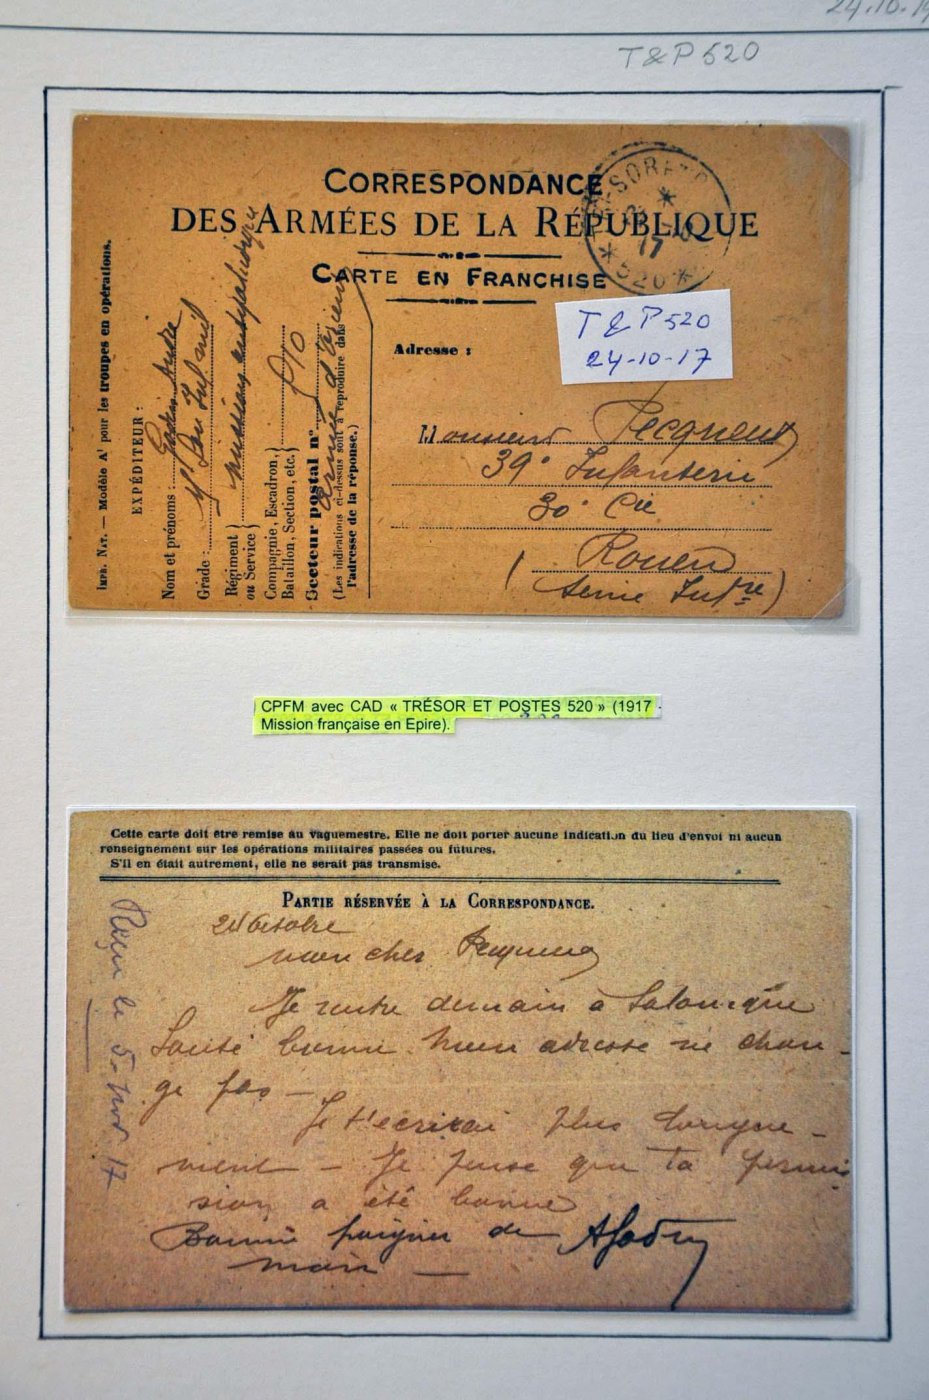 24.10.19
T&P 520
CORRESPONDANCE
DES ARMÉES DE LA RÉPUBLIQUE
CARTE EN FRANCHISE
TRESOR ET P
17
* 520 *
T & P 520
24-10-17
Adresse :
Monsieur Pecqueux
39e Infanterie
30e Cie
Rouen
(Seine Infre)
IMP. NAT. — Modèle A1 pour les troupes en opérations.
EXPÉDITEUR :
Nom et prénoms :
Grade :
Régiment
ou Service
mission antipaludique
Compagnie, Escadron,
Bataillon, Section, etc.
Secteur postal n° 510
armée d'Orient
(Les indications ci-dessus sont à reproduire dans
l'adresse de la réponse.)
CPFM avec CAD « TRÉSOR ET POSTES 520 » (1917
Mission française en Epire).
Cette carte doit être remise au vaguemestre. Elle ne doit porter aucune indication du lieu d'envoi ni aucun
renseignement sur les opérations militaires passées ou futures.
S'il en était autrement, elle ne serait pas transmise.
PARTIE RÉSERVÉE À LA CORRESPONDANCE.
24 Octobre
mon cher Pecqueux
Je rentre demain à Salonique
Santé bonne. Mon adresse ne chan-
ge pas —
Je t'écrirai plus longue-
ment — Je pense que ta permis
sion a été bonne
Bonne poignée de
main —
AGodin
Reçu le 5-nov 17